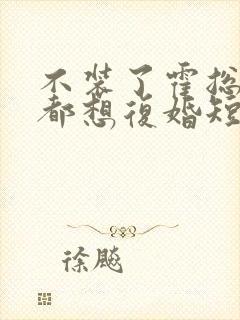 不装了霍总
都想復婚短
徐飚